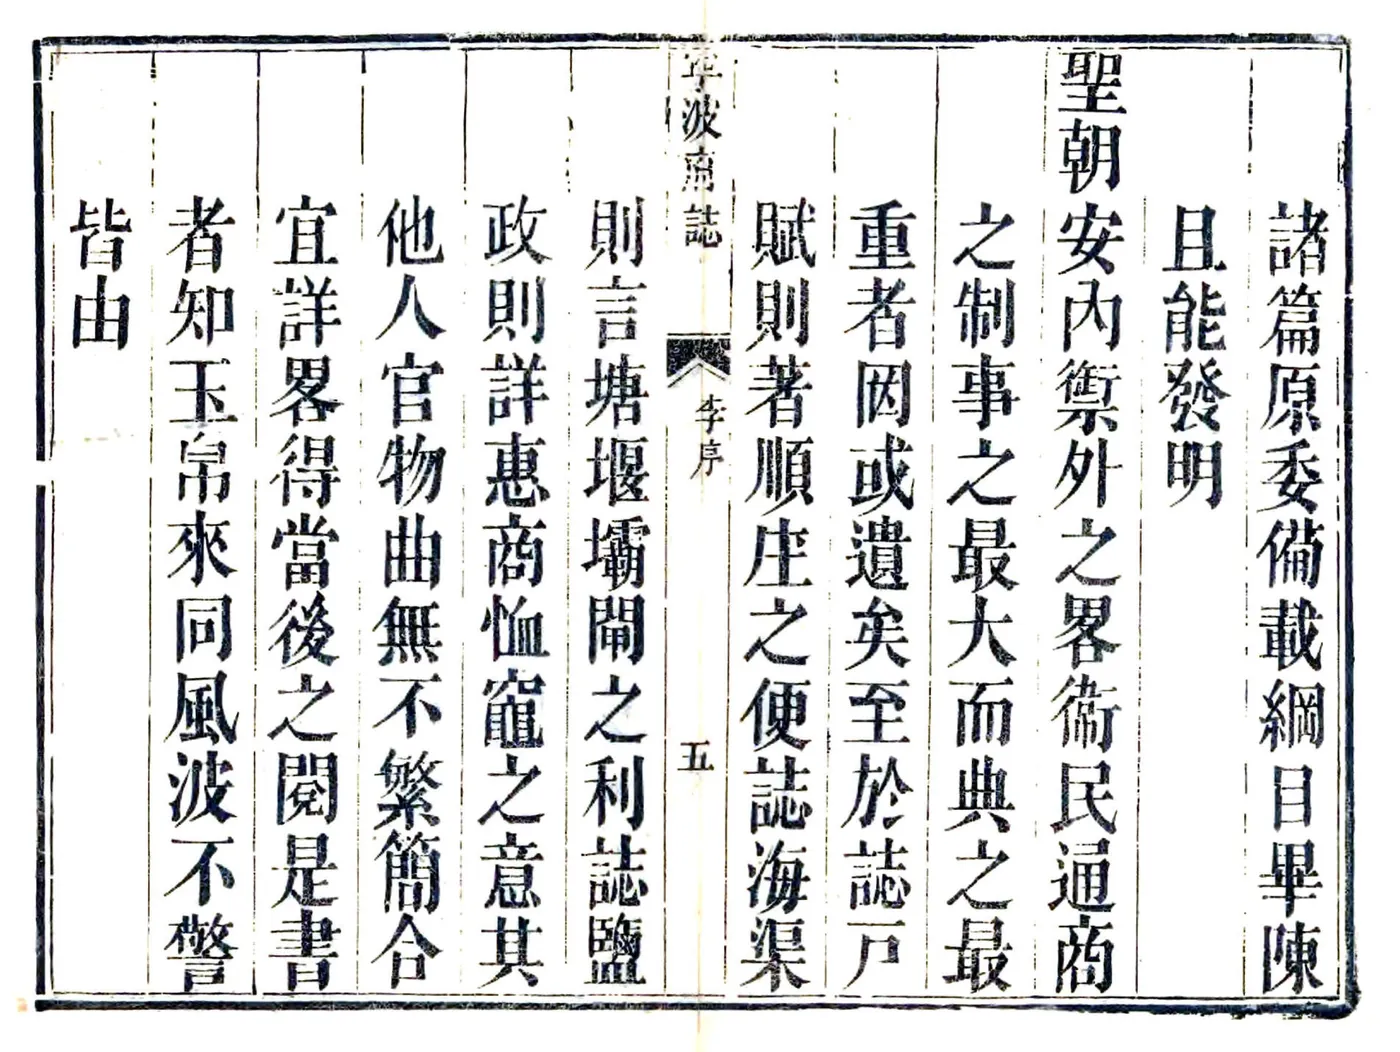 諸篇原委備載綱目畢陳
且能發明
聖朝安內禦外之畧衞民通商
之制事之最大而典之最
重者罔或遺矣至於誌戸
賦則著順庄之便誌海渠
寧波府誌
李序
五
則言塘堰壩閘之利誌鹽
政則詳惠商恤竈之意其
他人官物曲無不繁簡合
宜詳畧得當後之閱是書
者知玉帛來同風波不警
皆由